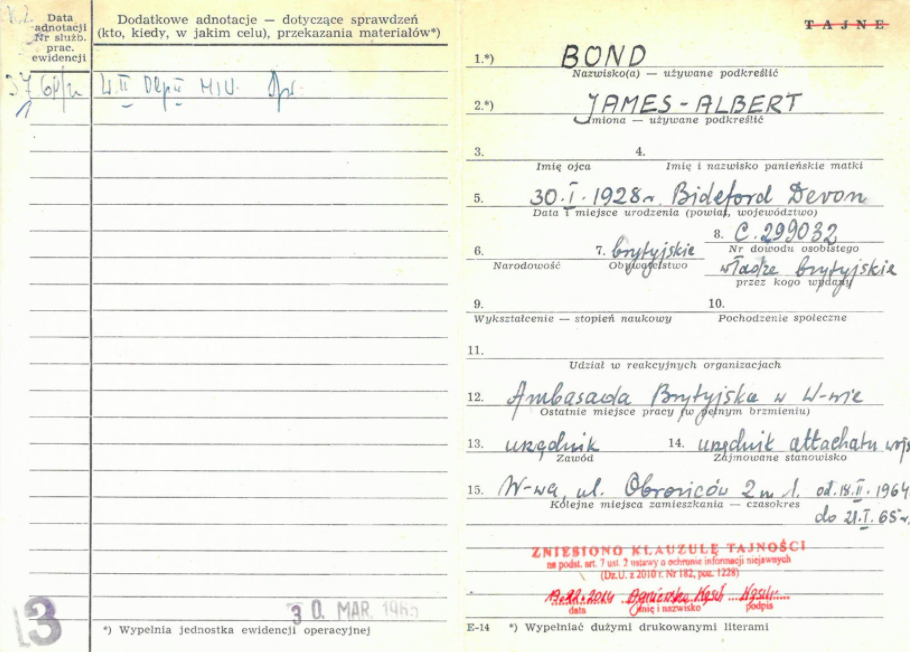 Data
adnotacji
Nr służb.
prac.
ewidencji
Dodatkowe adnotacje — dotyczące sprawdzeń
(kto, kiedy, w jakim celu), przekazania materiałów*)
30. MAR. 1965
3
*) Wypełnia jednostka ewidencji operacyjnej
TAJNE
1.*) BOND
Nazwisko(a) — używane podkreślić
2.*) JAMES-ALBERT
Imiona — używane podkreślić
3. 4.
Imię ojca Imię i nazwisko panieńskie matki
5. 30.I.1928r. Bideford Devon
Data i miejsce urodzenia (powiat, województwo)
8. C.299032
6. 7. brytyjskie Nr dowodu osobistego
Narodowość Obywatelstwo władze brytyjskie
przez kogo wydany
9. 10.
Wykształcenie — stopień naukowy Pochodzenie społeczne
11.
Udział w reakcyjnych organizacjach
12. Ambasada Brytyjska w W-wie
Ostatnie miejsce pracy (w pełnym brzmieniu)
13. urzędnik 14. urzędnik attachatu wojs
Zawód Zajmowane stanowisko
15. W-wa, ul. Obrońców 2 m 1. od 18.II.1964
Kolejne miejsca zamieszkania — czasokres
do 21.I.65r.
ZNIESIONO KLAUZULĘ TAJNOŚCI
na podst. art. 7 ust. 2 ustawy o ochronie informacji niejawnych
(Dz.U. z 2010 r. Nr 182, poz. 1228)
Agnieszka
data imię i nazwisko podpis
E-14 *) Wypełniać dużymi drukowanymi literami